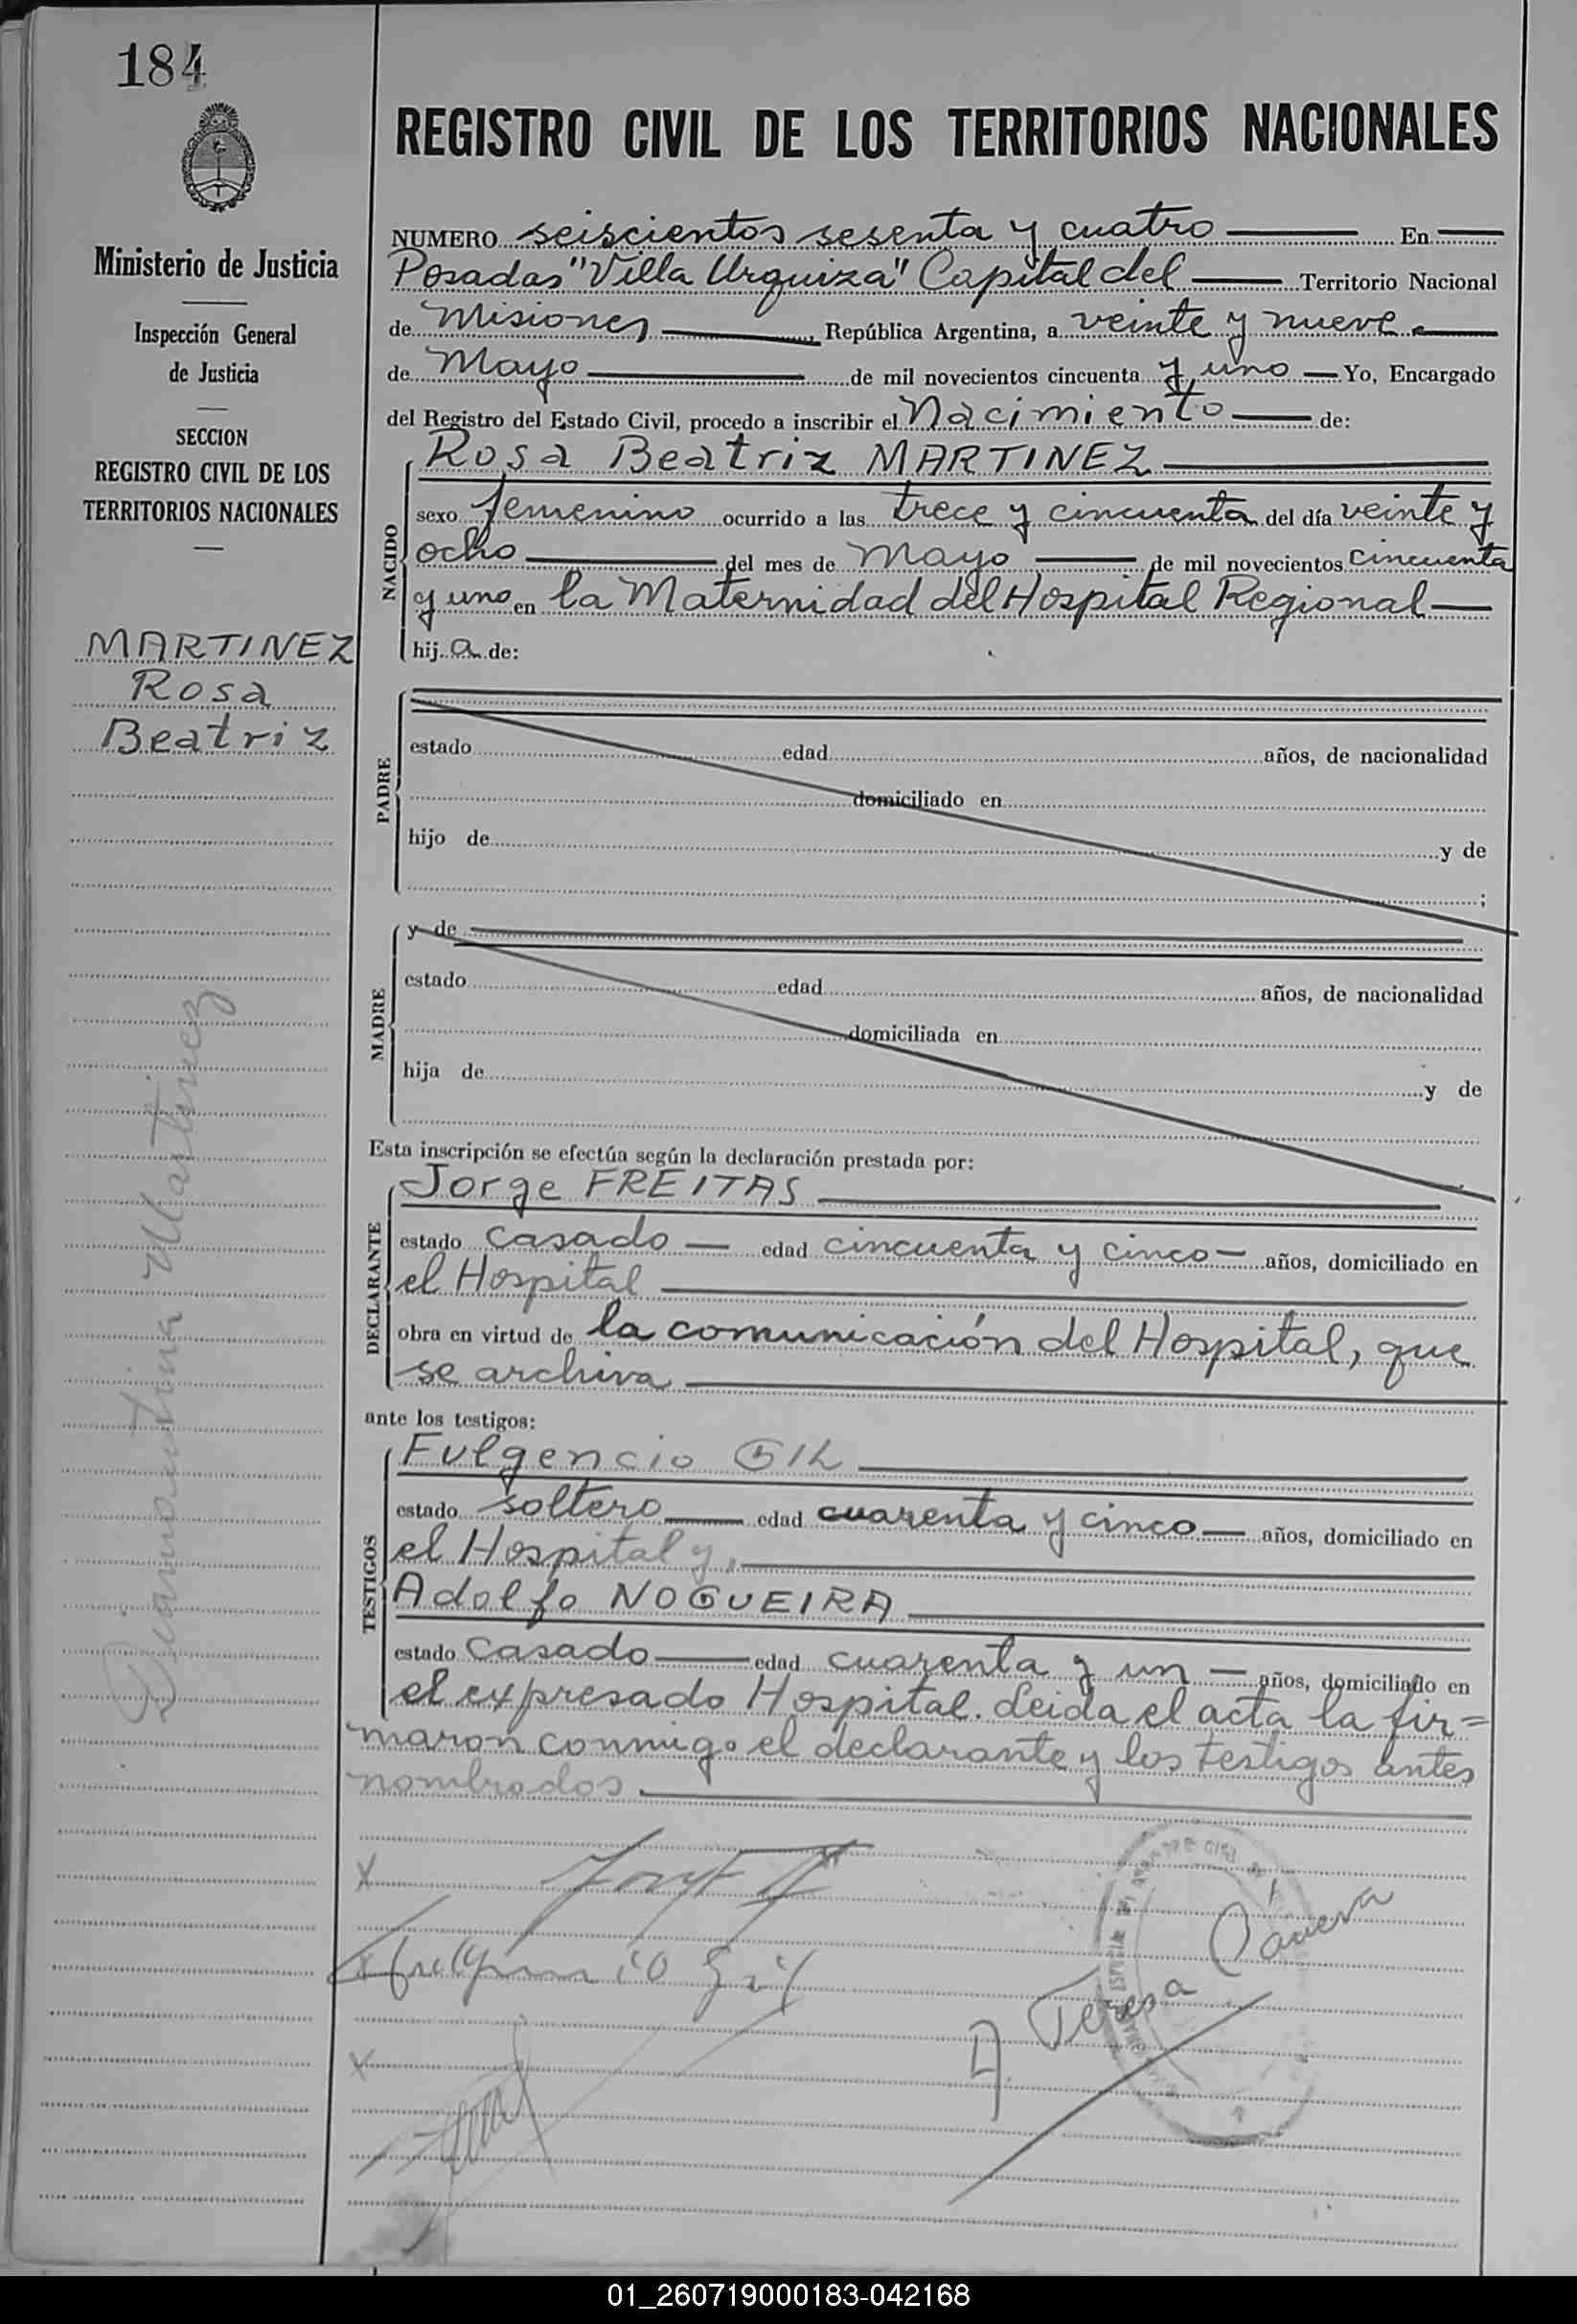 184
REGISTRO CIVIL DE LOS TERRITORIOS NACIONALES
Ministerio de Justicia
Inspección General
de Justicia
SECCION
REGISTRO CIVIL DE LOS
TERRITORIOS NACIONALES
MARTINEZ
Rosa
Beatriz
Diamantina Martinez
NUMERO seiscientos sesenta y cuatro En
Posadas "Villa Urquiza" Capital del Territorio Nacional
de Misiones, República Argentina, a veinte y nueve
de Mayo de mil novecientos cincuenta y uno Yo, Encargado
del Registro del Estado Civil, procedo a inscribir el Nacimiento de:
NACIDO
Rosa Beatriz MARTINEZ
sexo femenino ocurrido a las trece y cincuenta del día veinte y
ocho del mes de Mayo de mil novecientos cincuenta
y uno en la Maternidad del Hospital Regional
hij a de:
PADRE
estado edad años, de nacionalidad
domiciliado en
hijo de y de
;
MADRE
y de
estado edad años, de nacionalidad
domiciliada en
hija de y de
Esta inscripción se efectúa según la declaración prestada por:
DECLARANTE
Jorge FREITAS
estado casado edad cincuenta y cinco años, domiciliado en
el Hospital
obra en virtud de la comunicación del Hospital, que
se archiva
ante los testigos:
TESTIGOS
Fulgencio GIL
estado soltero edad cuarenta y cinco años, domiciliado en
el Hospital y
Adolfo NOGUEIRA
estado casado edad cuarenta y un años, domiciliado en
el expresado Hospital. Leida el acta la fir=
maron conmigo el declarante y los testigos antes
nombrados
x
x
Gil
x
A. Teresa
01_260719000183-042168